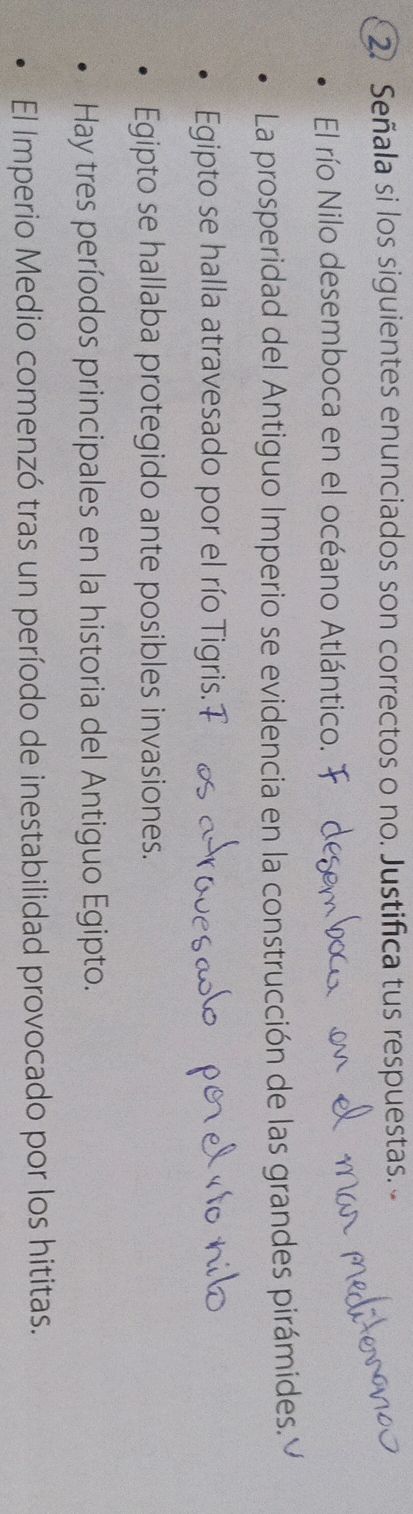 2. Señala si los siguientes enunciados son correctos o no. Justifica tus respuestas.
• El río Nilo desemboca en el océano Atlántico. F desemboca en el mar mediterraneo
• La prosperidad del Antiguo Imperio se evidencia en la construcción de las grandes pirámides. V
• Egipto se halla atravesado por el río Tigris. F es atravesado por el rio nilo
• Egipto se hallaba protegido ante posibles invasiones.
• Hay tres períodos principales en la historia del Antiguo Egipto.
• El Imperio Medio comenzó tras un período de inestabilidad provocado por los hititas.